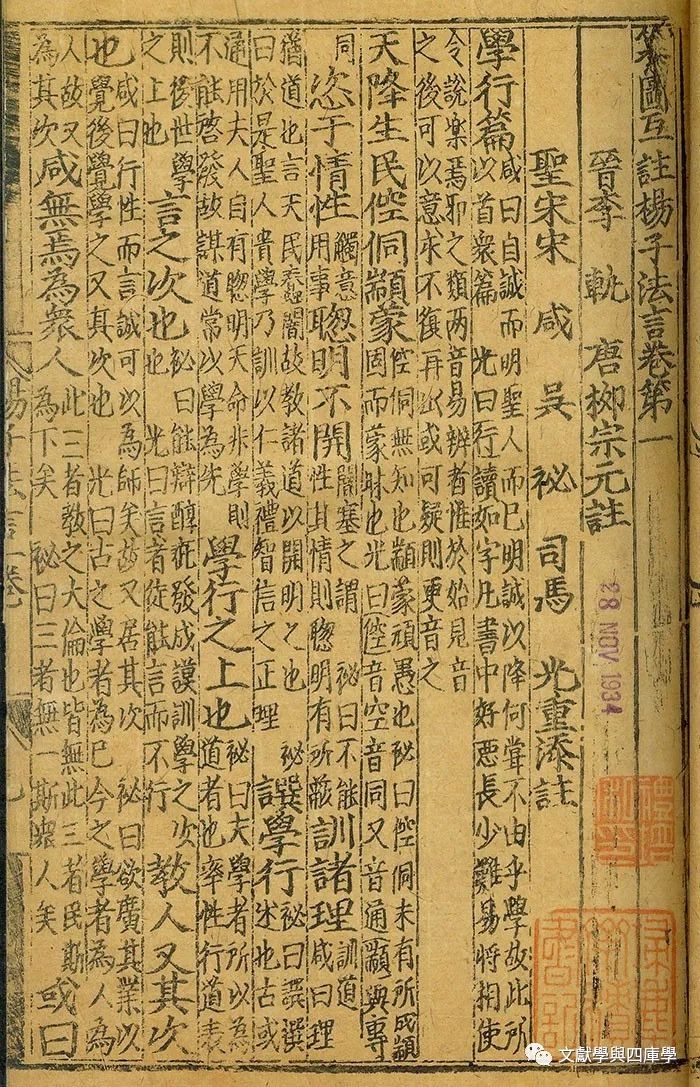 纂圖互註楊子法言卷第一
晉李 軌 唐柳宗元註
聖宋宋 咸 吳 祕 司馬 光重添註
學行篇咸曰自誠而明聖人而已明誠以降何甞不由乎學故此所以首衆篇 光曰行讀如字凡書中好惡長少難易將相使
令說樂焉邪之類两音易辨者惟於始見音之後可以意求不復再出或可疑則更音之
天降生民倥侗顓蒙倥侗無知也顓蒙頑愚也祕曰倥侗未有所成顓固而蒙昧也光曰倥音空音同又音通顓與專
同恣于情性觸意用事聦明不開闇塞之謂 祕曰不能性其情則聦明有所蔽訓諸理訓道 咸曰理
猶道也言天民蠢闇故教諸道以開明之也 祕曰於是聖人貴學乃訓以仁義禮智信之正理譔學行祕曰譔撰述也古或
通用夫人自有聦明天命非學則不能啓發故謀道常以學為先學行之上也祕曰夫學者所以為道者也率性行道表
則後世學之上也言之次也祕曰能辯醇疵發成謨訓學之次也 光曰言者徒能言而不行教人又其次
也咸曰行性而言誠可以為師矣故又居其次 祕曰欲廣其業以覺後覺學之又其次也 光曰古之學者為己今之學者為人為
人故又為其次咸無焉為衆人此三者教之大倫也皆無此三者民斯為下矣 祕曰三者無一斯衆人矣或曰
28 NOV 1934
文獻學與四庫學